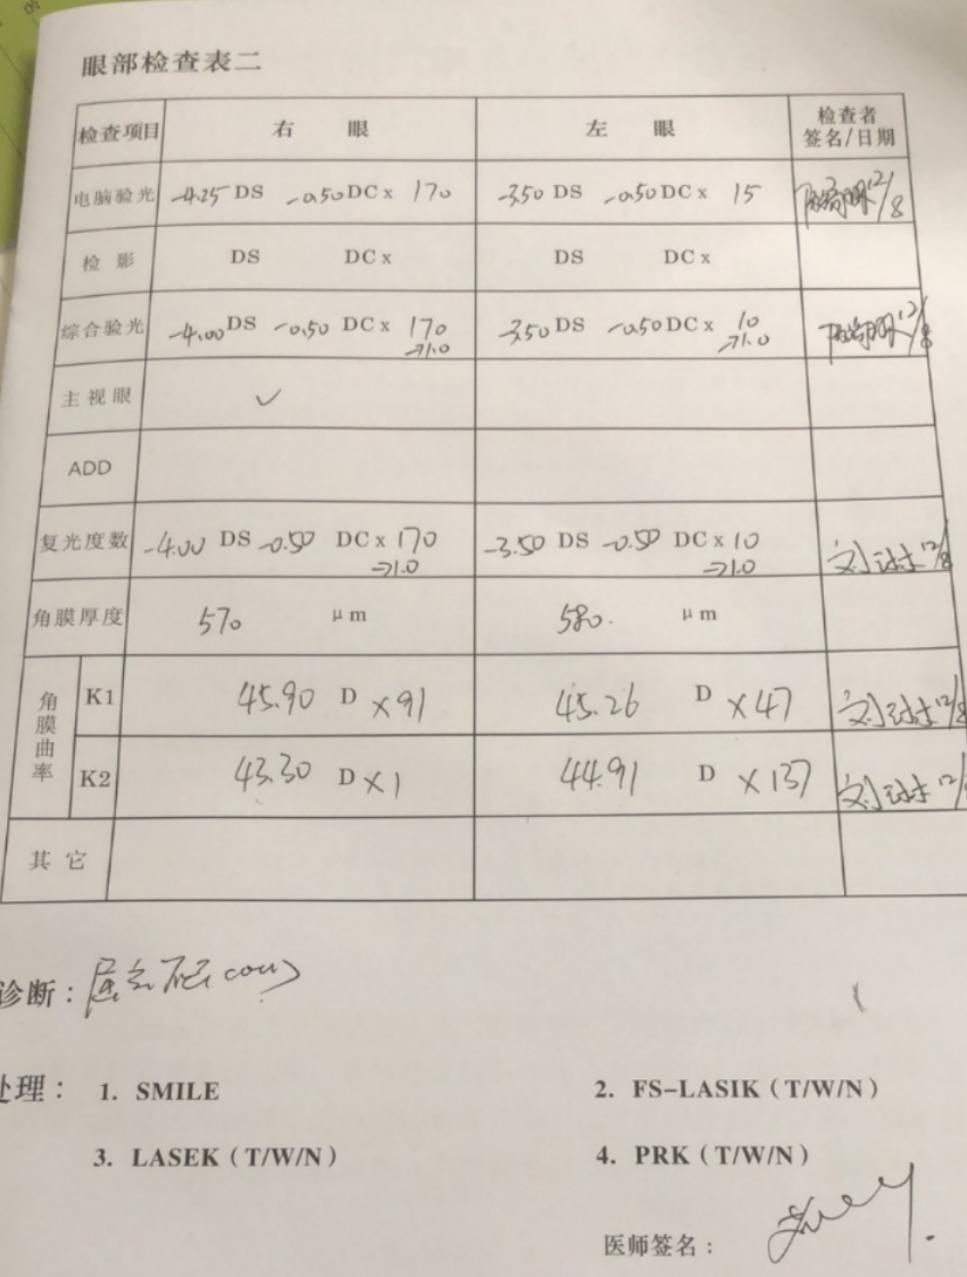 眼部检查表二
检查项目 右 眼 左 眼 检查者签名/日期
电脑验光 -4.25 DS -0.50 DC x 170 -3.50 DS -0.50 DC x 15 12/8
检 影 DS DC x DS DC x
综合验光 -4.00 DS -0.50 DC x 170 →1.0 -3.50 DS -0.50 DC x 10 →1.0 12/8
主视眼 ✓
ADD
复光度数 -4.00 DS -0.50 DC x 170 →1.0 -3.50 DS -0.50 DC x 10 →1.0 12/8
角膜厚度 570 μm 580. μm
角膜曲率 K1 45.90 D x 91 45.26 D x 47 12/8
K2 43.30 D x 1 44.91 D x 137 12/
其它
诊断: 屈光不正 (ou)
处理: 1. SMILE 2. FS-LASIK (T/W/N)
3. LASEK (T/W/N) 4. PRK (T/W/N)
医师签名: